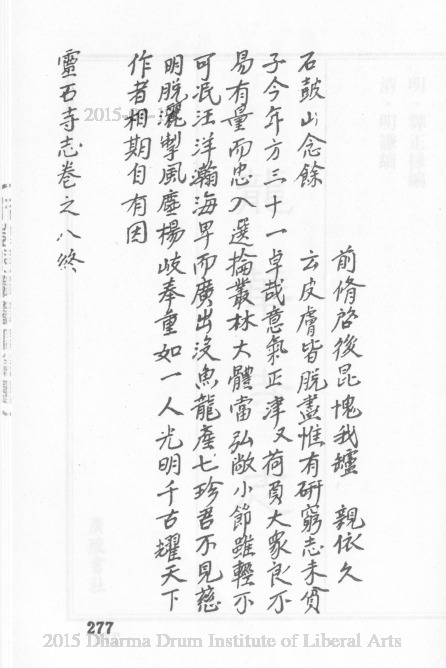 前脩啓後昆愧我罏 親依久
石鼓山念餘 云皮膚皆脫盡惟有研窮志未貧
子今年方三十一卓哉意氣正津又荷負大眾良不
易有量而忠入選掄叢林大體當弘敞小節雖輕不
可泯汪洋瀚海早而廣出沒魚龍產七珍君不見慈
明脫灑掣風塵楊岐奉重如一人光明千古耀天下
作者相期自有因
靈石寺志卷之八終
277
2015 Dharma Drum Institute of Liberal Arts